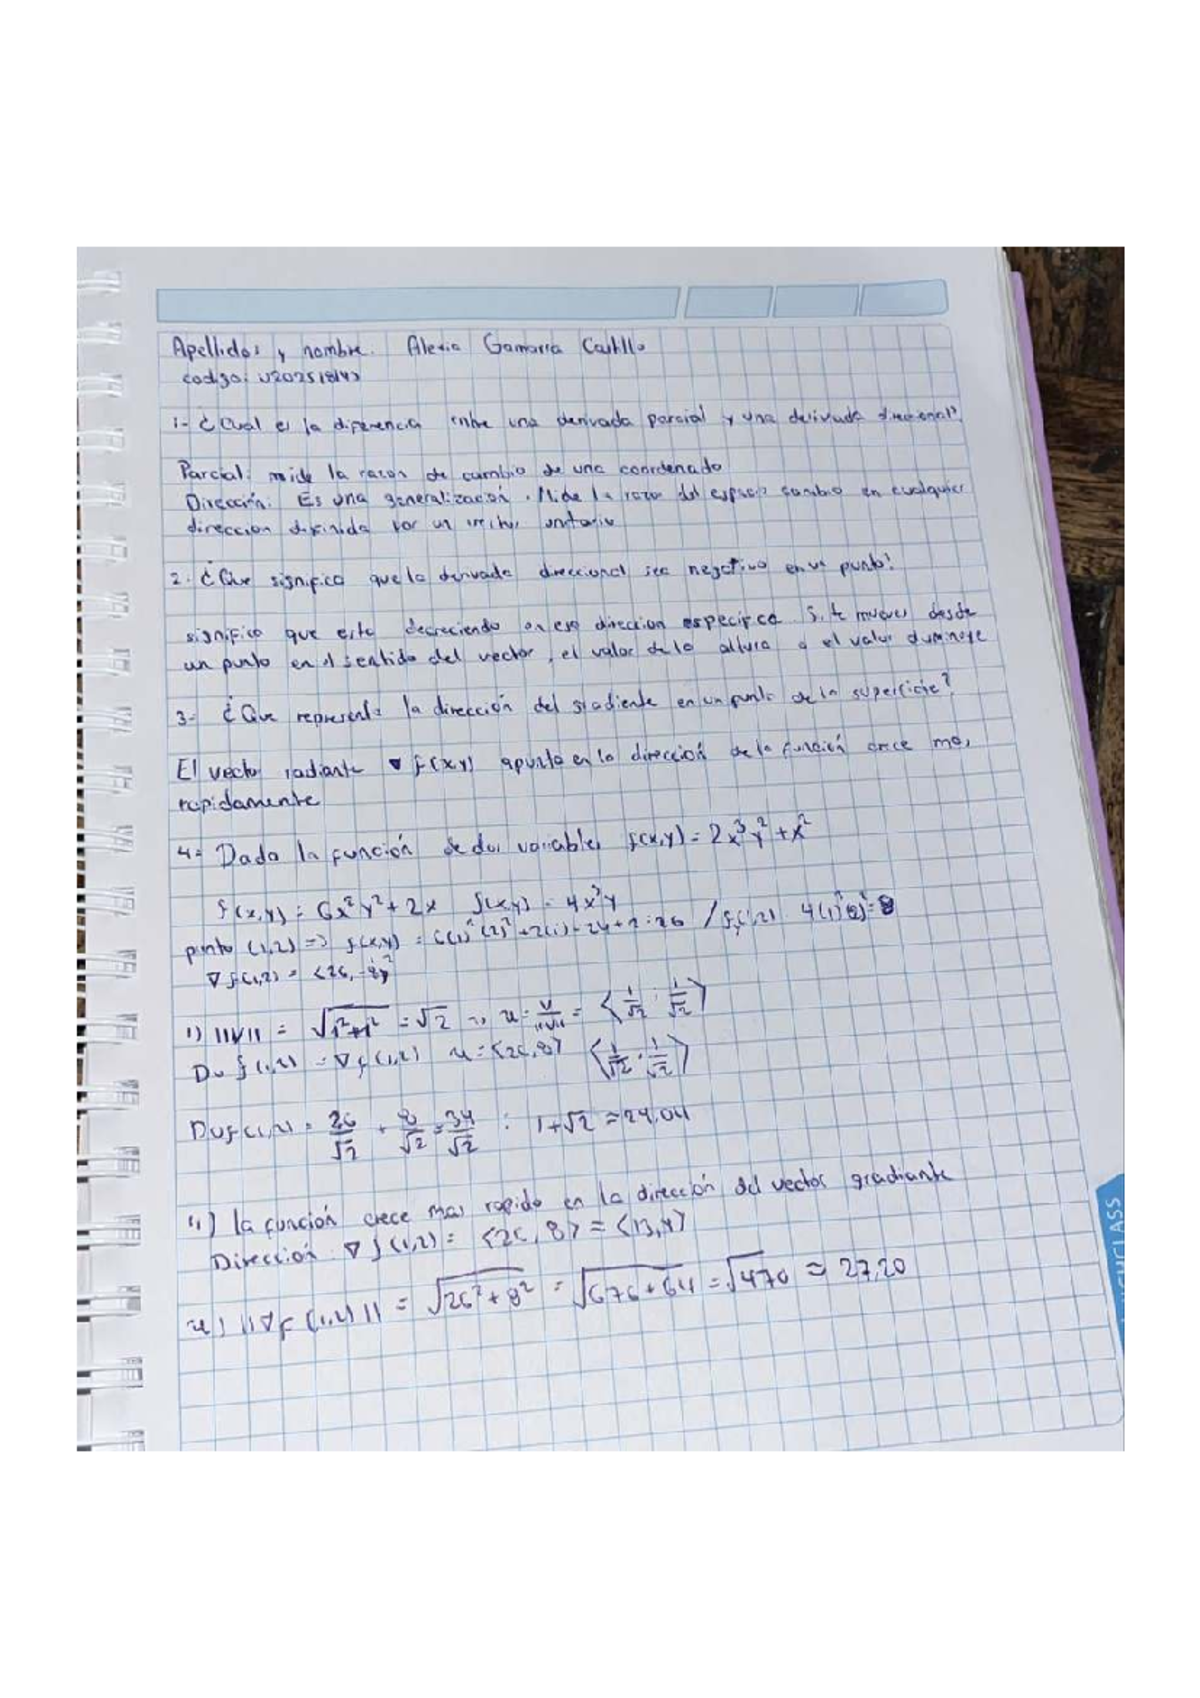 Apellidos y nombre. Alexia Gamarra Castillo
codigo: U202518143
1- ¿Cual es la diferencia entre una derivada parcial y una derivada direccional?
Parcial: mide la razon de cambio de una coordenado
Dirección: Es una generalización. Mide la razon del espacio cambio en cualquier
direccion difinida por un vector unitario
2. ¿Que significa que la derivada direccional sea negativa en un punto?
significo que esta decreciendo en esa direccion especifica. Si te mueves desde
un punto en el sentido del vector, el valor de la altura o el valor disminuye
3- ¿Que representa la dirección del gradiente en un punto de la superficie?
El vector radiante ▽ f(x,y) apunta en la dirección de la función crece mas
rapidamente
4= Dada la función de dos variables f(x,y) = 2x³y² + x²
f(x,y) = 6x²y² + 2x f(x,y) = 4x³y
punto (1,2) => f(x,y) = 6(1)²(2)² + 2(1) = 24 + 2 = 26 / f(1,2) 4(1)³(2) = 8
▽ f(1,2) = <26, 8>
i) ||v|| = √1²+1² = √2 => u = v/||v|| = <1/√2 , 1/√2>
Du f(1,2) = ▽ f(1,2) u = <26,8> <1/√2 , 1/√2>
Duf(1,2) = 26/√2 + 8/√2 = 34/√2 : 17√2 ≈ 24,04
ii) la función crece mas rapido en la dirección del vector gradiante
Dirección ▽ f(1,2) = <26, 8> = <13,4>
||▽f (1,2)|| = √26²+8² = √676+64 = √470 ≈ 27,20
CLASS